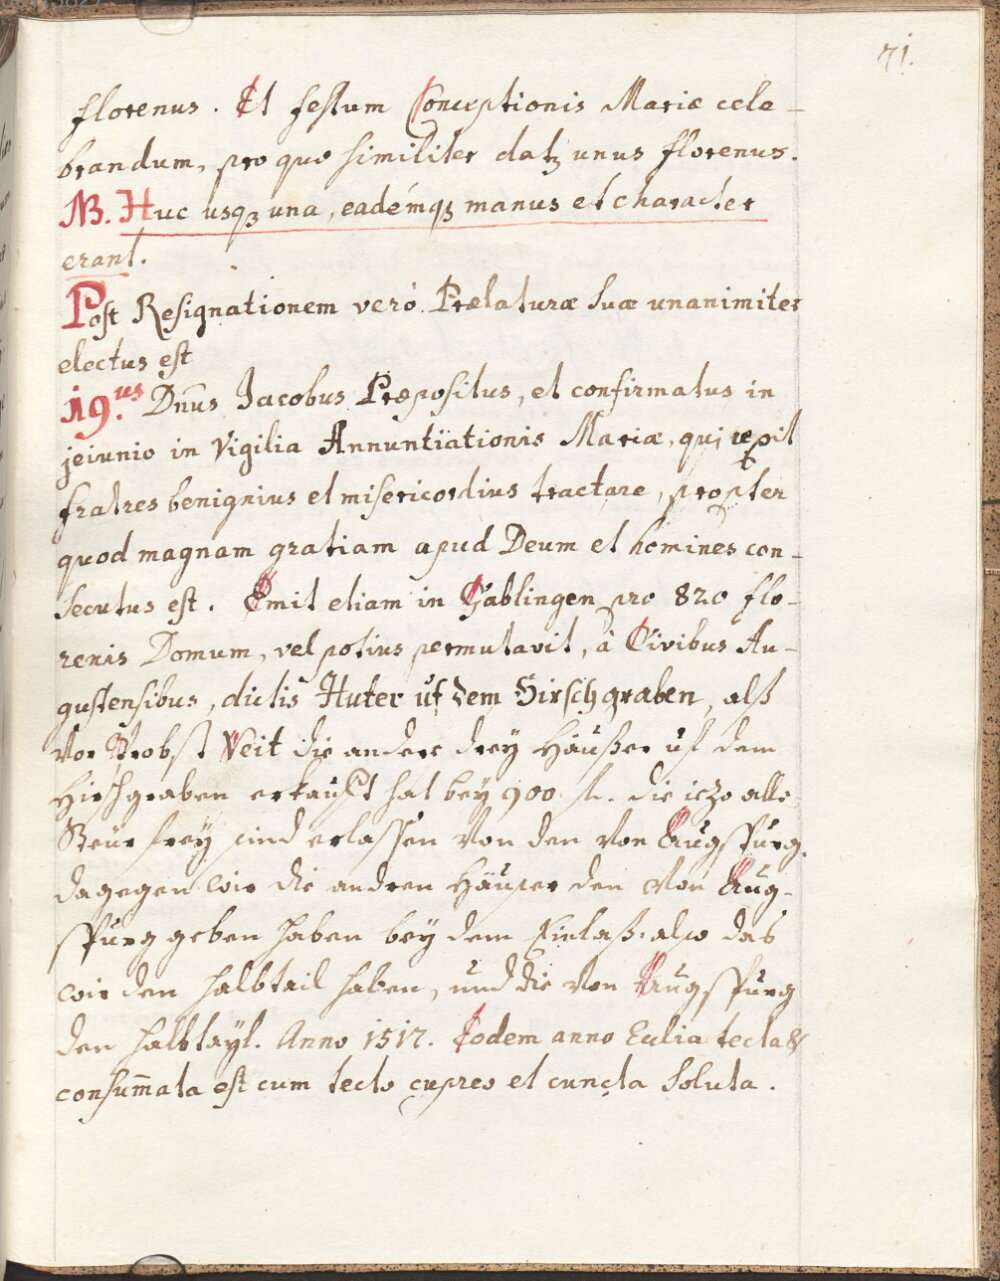 71.
florenus. Et festum Conceptionis Mariæ cele-
brandum, pro quo similiter datꝫ unus florenus.
NB. Huc usqꝫ una, eadémqꝫ manus et character
erant.
Post Resignationem veró Prælaturæ suæ unanimiter
electus est
19.us Dn̄us Jacobus Præpositus, et confirmatus in
jeiunio in Vigilia Annuntiationis Mariæ, qui cepit
fratres benignius et misericordius tractare, propter
quod magnam gratiam apud Deum et homines con-
secutus est. Emit etiam in Gablingen pro 820 flo-
renis Domum, vel potius permutavit, à Civibus Au-
gustensibus, dictis Huter uf dem Hirschgraben, alß
Vor Probst Veit die andere drey Häußer uf dem
Hirschgraben erkaufft hat bey 900 fl. die iezo alle
Steür freÿ sind erlassen Von den Von Augspurg,
dagegen wir die andren Häuser den Von Aug-
spurg geben haben beÿ dem Einlaß. also das
wir den halbtail haben, und die von Augspurg
den halbtaÿl. Anno 1517. Eodem anno Ecclia tecta &
consum̄ata est cum tecto cupreo et cuncta soluta.